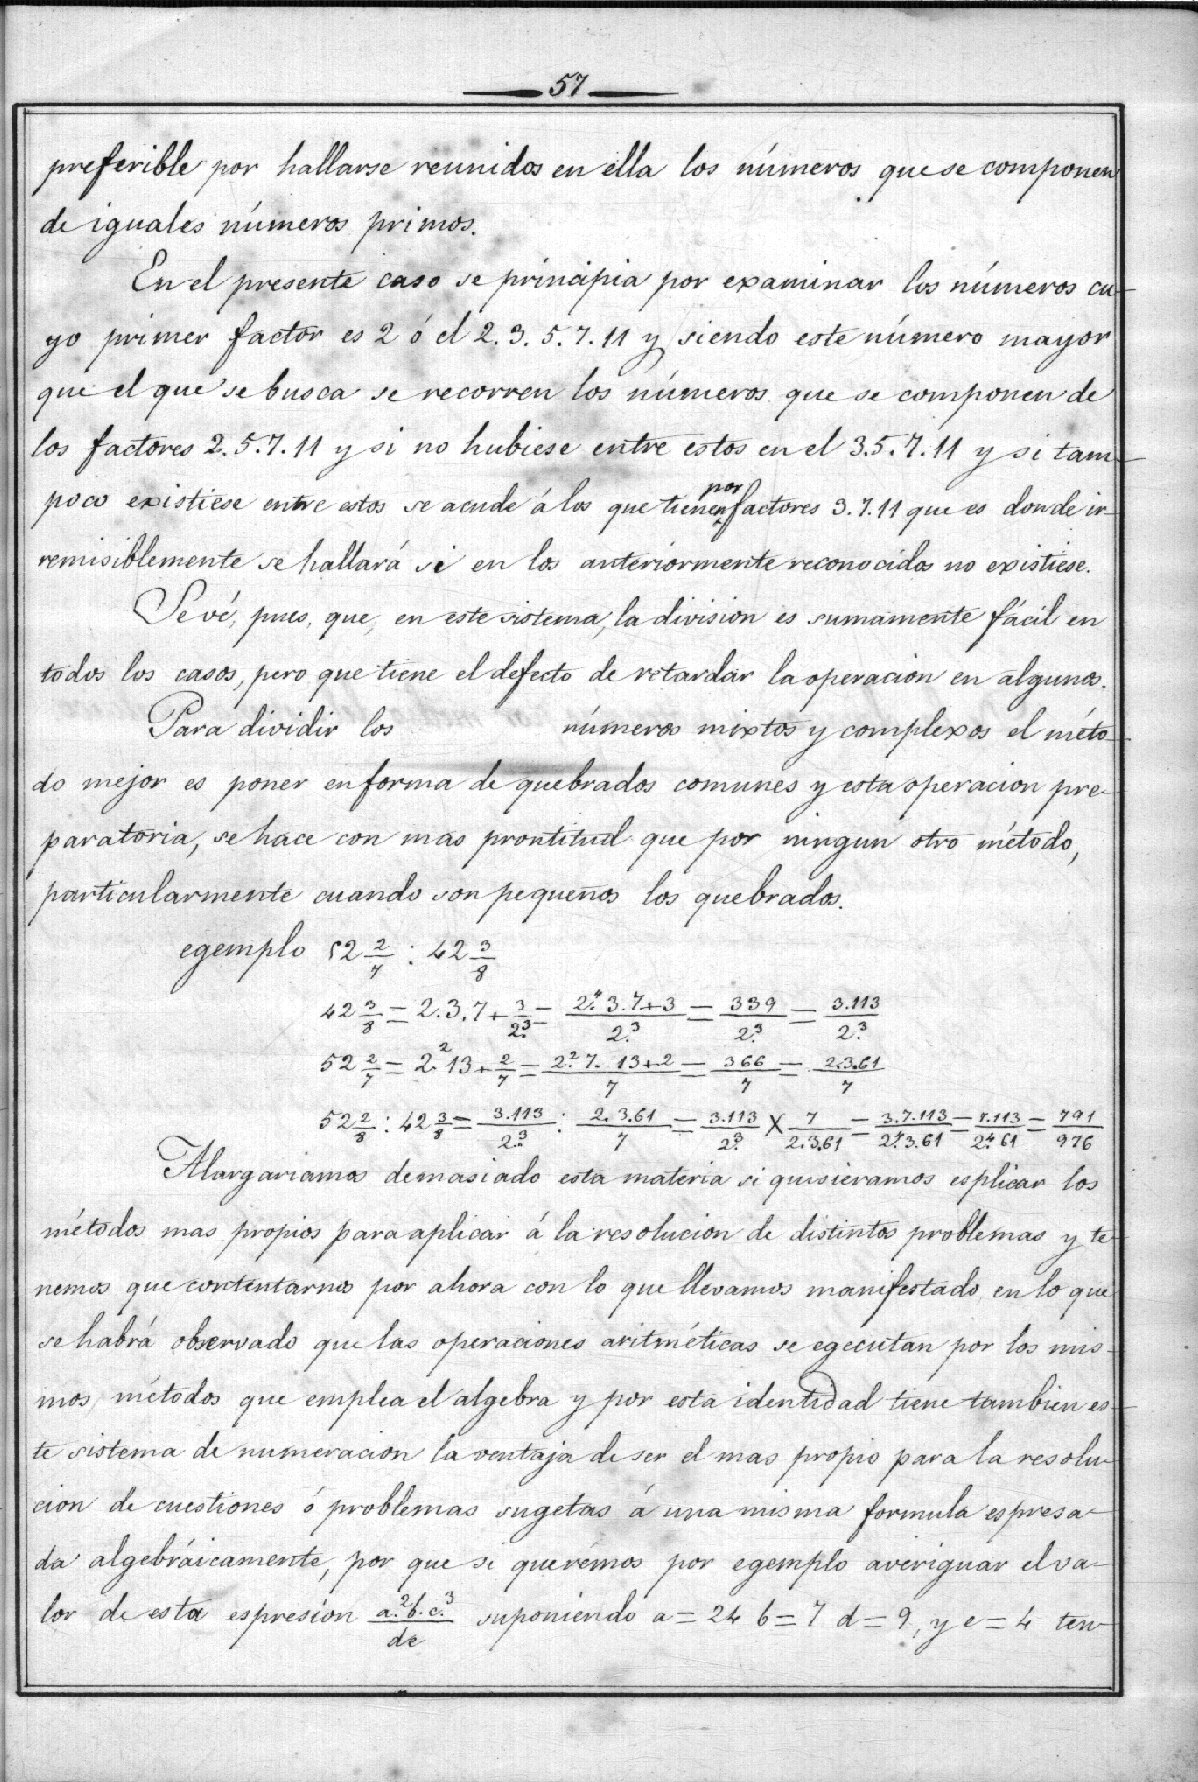 57
preferible por hallarse reunidos en ella los números que se componen
de iguales números primos.
En el presente caso se principia por examinar los números cu-
yo primer factor es 2 ó el 2.3.5.7.11 y siendo este número mayor
que el que se busca se recorren los números que se componen de
los factores 2.5.7.11 y si no hubiese entre estos en el 3.5.7.11 y si tam-
poco existiese entre estos se acude á los que tienen por factores 3.7.11 que es donde ir-
remisiblemente se hallará si en los anteriormente reconocidos no existiese.
Se vé, pues, que, en este sistema, la division es sumamente fácil en
todos los casos, pero que tiene el defecto de retardar la operacion en algunos.
Para dividir los números mixtos y complexos el méto-
do mejor es poner en forma de quebrados comunes y esta operacion pre-
paratoria, se hace con mas prontitud que por ningun otro método,
particularmente cuando son pequeños los quebrados.
egemplo 52 2/7 : 42 3/8
42 3/8 = 2.3.7 + 3/2.³ = 2.⁴3.7+3/2.³ = 339/2.³ = 3.113/2.³
52 2/7 = 2.²13 + 2/7 = 2.²7.13+2/7 = 366/7 = 2.3.61/7
52 2/8 : 42 3/8 = 3.113/2.³ : 2.3.61/7 = 3.113/2.³ × 7/2.3.61 = 3.7.113/2.⁴3.61 = 7.113/2.⁴61 = 791/976
Alargariamos demasiado esta materia si quisieramos esplicar los
métodos mas propios para aplicar á la resolucion de distintos problemas y te-
nemos que contentarnos por ahora con lo que llevamos manifestado, en lo que
se habrá observado que las operaciones aritméticas se egecutan por los mis-
mos métodos que emplea el algebra y por esta identidad tiene tambien es-
te sistema de numeracion la ventaja de ser el mas propio para la resolu-
cion de cuestiones ó problemas sugetas á una misma formula espresa-
da algebráicamente, por que si querémos por egemplo averiguar el va-
lor de esta espresion a.²b.c.³/de suponiendo a = 24 b = 7 d = 9, y e = 4 ten-